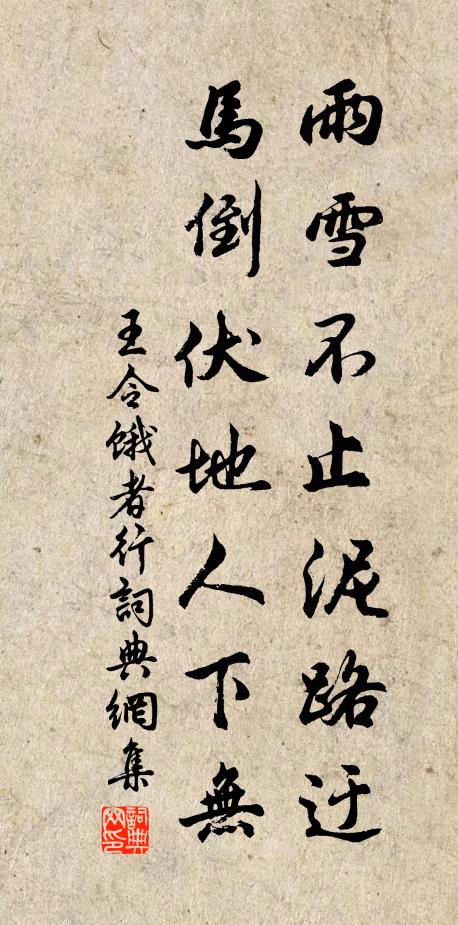 雨雪不止泥路迂
馬倒伏地人下無
王令餓者行詞典網集
詞典网印